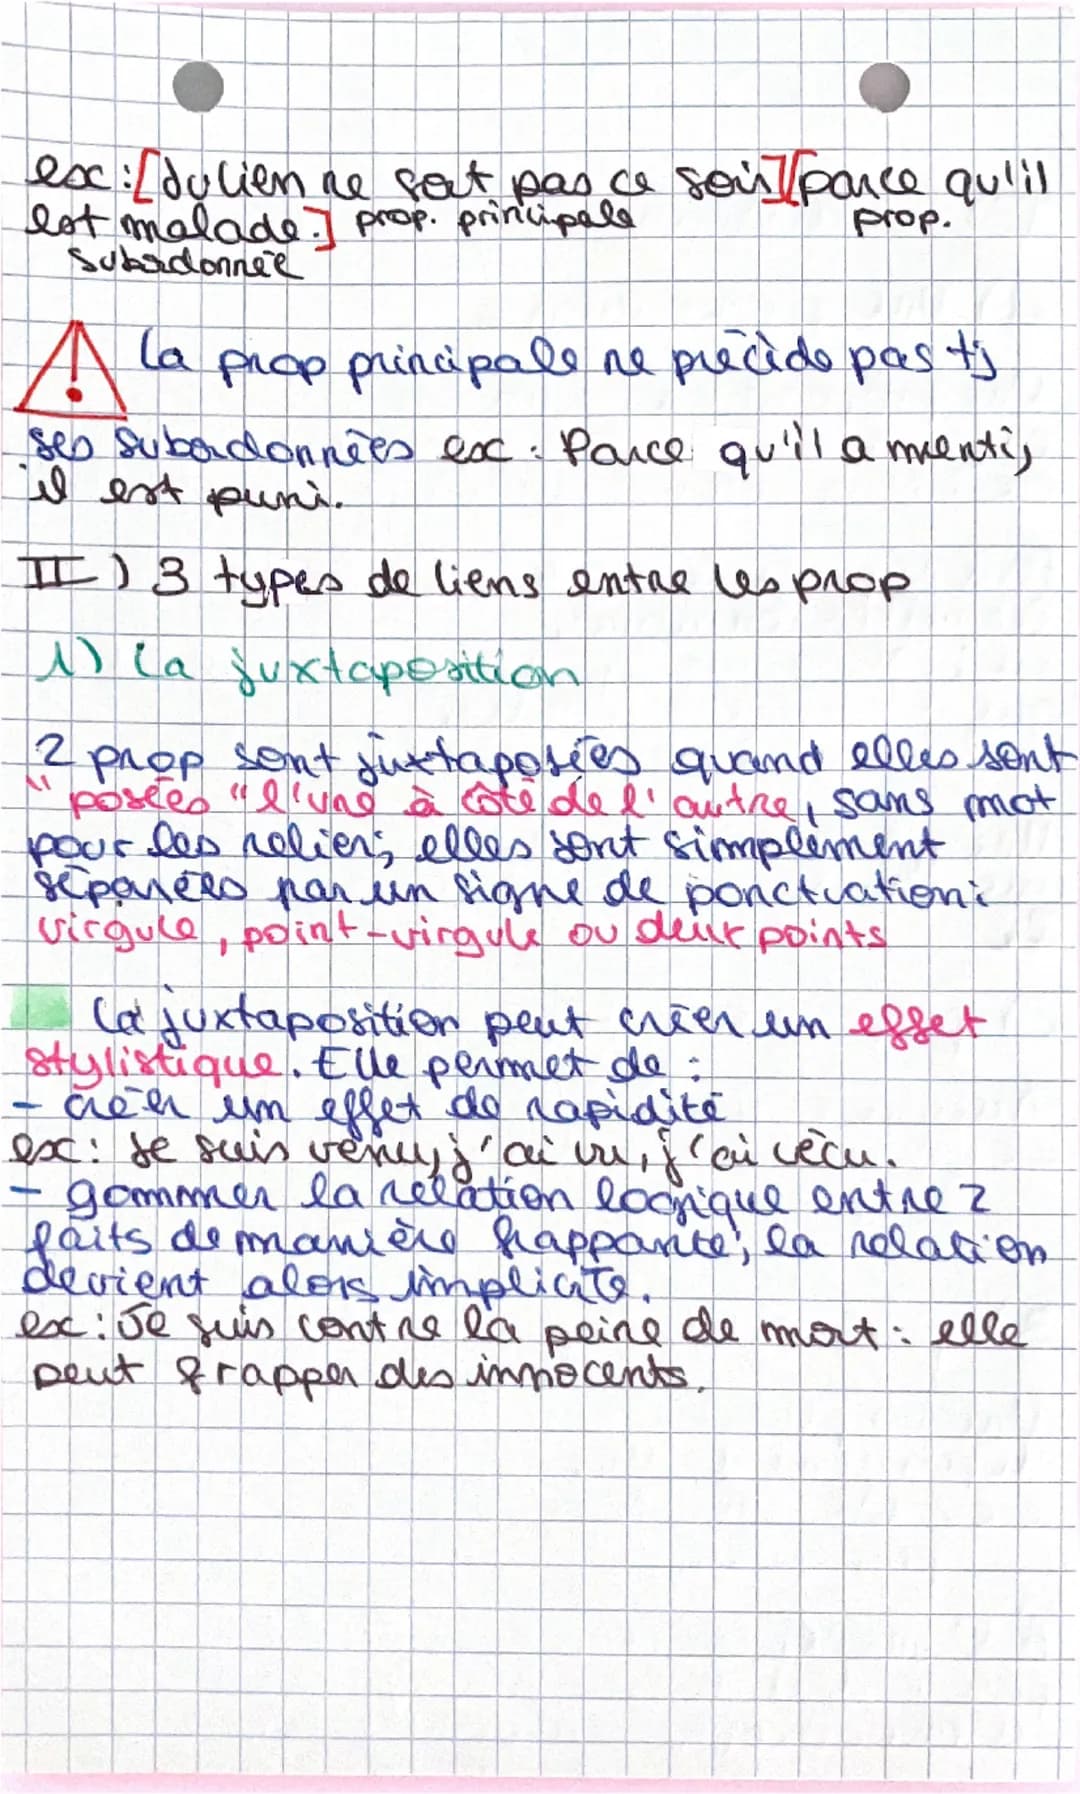 ex : [Julien ne sort pas ce soir][parce qu'il
est malade.] prop. principale prop.
subordonnée
La prop principale ne précède pas tj
ses subordonnées ex : Parce qu'il a menti,
il est puni.
II) 3 types de liens entre les prop
1) La juxtaposition
2 prop sont juxtaposées quand elles sont
"posées" l'une à côté de l'autre, sans mot
pour les relier; elles sont simplement
séparées par un signe de ponctuation :
virgule, point-virgule ou deux points
La juxtaposition peut créer un effet
stylistique. Elle permet de :
- créer un effet de rapidité
ex : Je suis venu, j'ai vu, j'ai vécu.
- gommer la relation logique entre 2
faits de manière frappante; la relation
devient alors implicite.
ex : Je suis contre la peine de mort : elle
peut frapper des innocents.